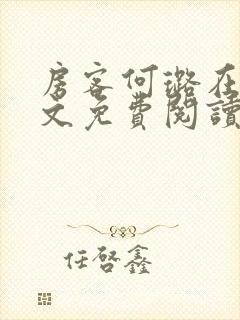 房客何璐在
文免費閱讀
任啓鑫